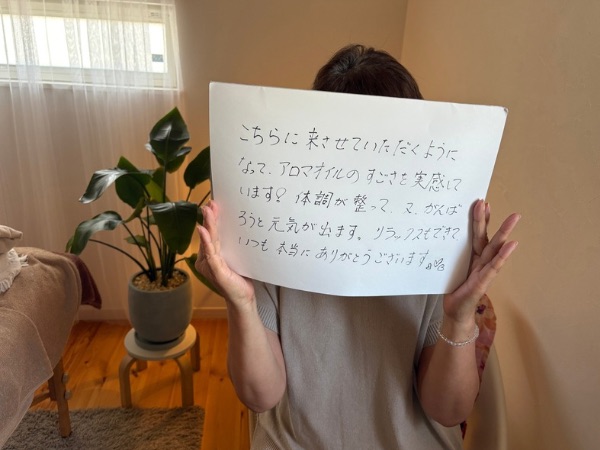 こちらに来させていただくように
なって、アロマオイルのすごさを実感して
います♡ 体調が整って、さ、がんば
ろうと元気が出ます。リラックスもできて
いつも本当にありがとうございます